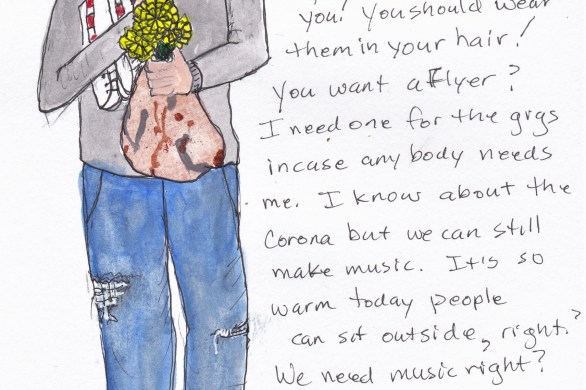 you! You should wear
them in your hair!
You want a Flyer?
I need one for the grgs
incase any body needs
me. I know about the
Corona but we can still
make music. It's so
warm today people
can sit outside, right?
We need music right?